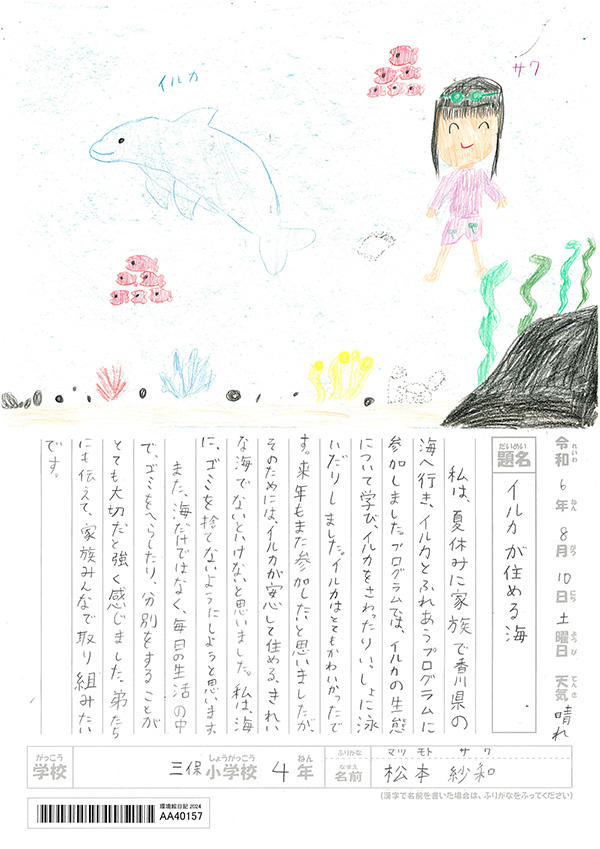 イルカ
サワ
令和6年8月10日土曜日 天気 晴れ
れいわ ねん がつ にち ようび てんき
だいめい
題名
イルカが住める海
私は、夏休みに家族で香川県の
海へ行き、イルカとふれあうプログラムに
参加しました。プログラムでは、イルカの生態
について学び、イルカをさわったりいっしょに泳
いだりしました。イルカはとてもかわいかったで
す。来年もまた参加したいと思いましたが、
そのためには、イルカが安心して住める、きれい
な海でないといけないと思いました。私は、海
に、ゴミを捨てないようにしようと思います。
また、海だけではなく、毎日の生活の中
で、ゴミをへらしたり、分別をすることが
とても大切だと強く感じました。弟たち
にも伝えて、家族みんなで取り組みたい
です。
がっこう しょうがっこう ねん
学校 三保小学校 4年
ふりがな マツモト サワ
なまえ
名前 松本 紗和
(漢字で名前を書いた場合は、ふりがなをふってください)
環境絵日記 2024
AA40157